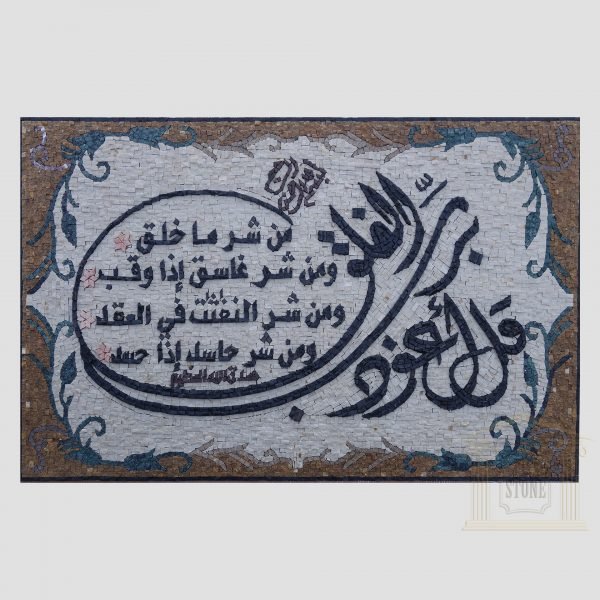 بسم الله الرحمن الرحيم
قل أعوذ برب الفلق
من شر ما خلق
ومن شر غاسق إذا وقب
ومن شر النفثت في العقد
ومن شر حاسد إذا حسد
صدق الله العظيم
STONE